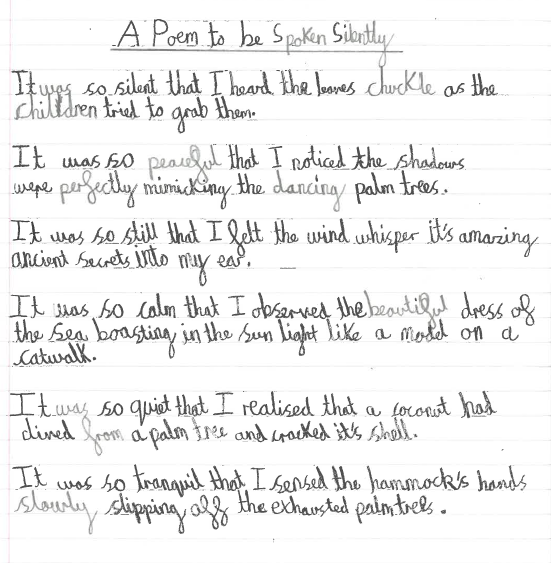 A Poem to be Spoken Silently
It was so silent that I heard the leaves chuckle as the
chilldren tried to grab them.
It was so peaceful that I noticed the shadows
were perfectly mimicking the dancing palm trees.
It was so still that I felt the wind whisper it's amazing
ancient secrets into my ear.
It was so calm that I observed the beautiful dress of
the sea boasting in the sun light like a model on a
catwalk.
It was so quiet that I realised that a coconut had
dived from a palm tree and cracked it's shell.
It was so tranquil that I sensed the hammock's hands
slowly slipping off the exhausted palm trees.